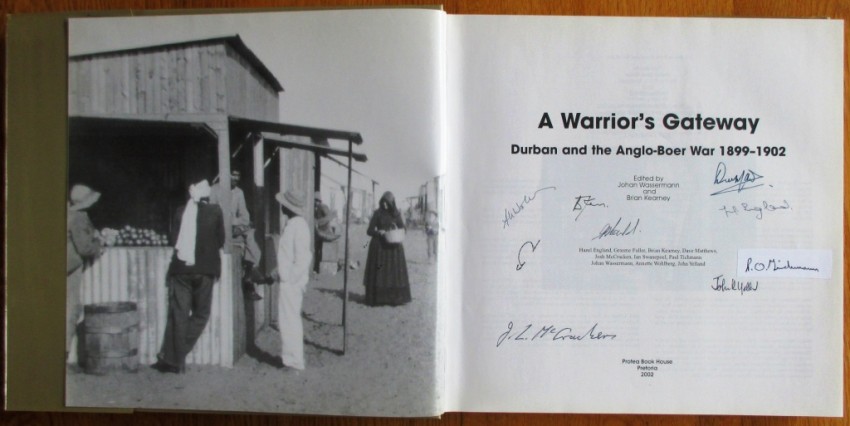 A Warrior's Gateway
Durban and the Anglo-Boer War 1899-1902
Edited by
Johan Wassermann
and
Brian Kearney
H England.
Hazel England, Graeme Fuller, Brian Kearney, Dave Matthews,
Josh McCracken, Jan Swanepoel, Paul Tichmann
Johan Wassermann, Annette Wohlberg, John Yelland
J. L. McCracken
Protea Book House
Pretoria
2002